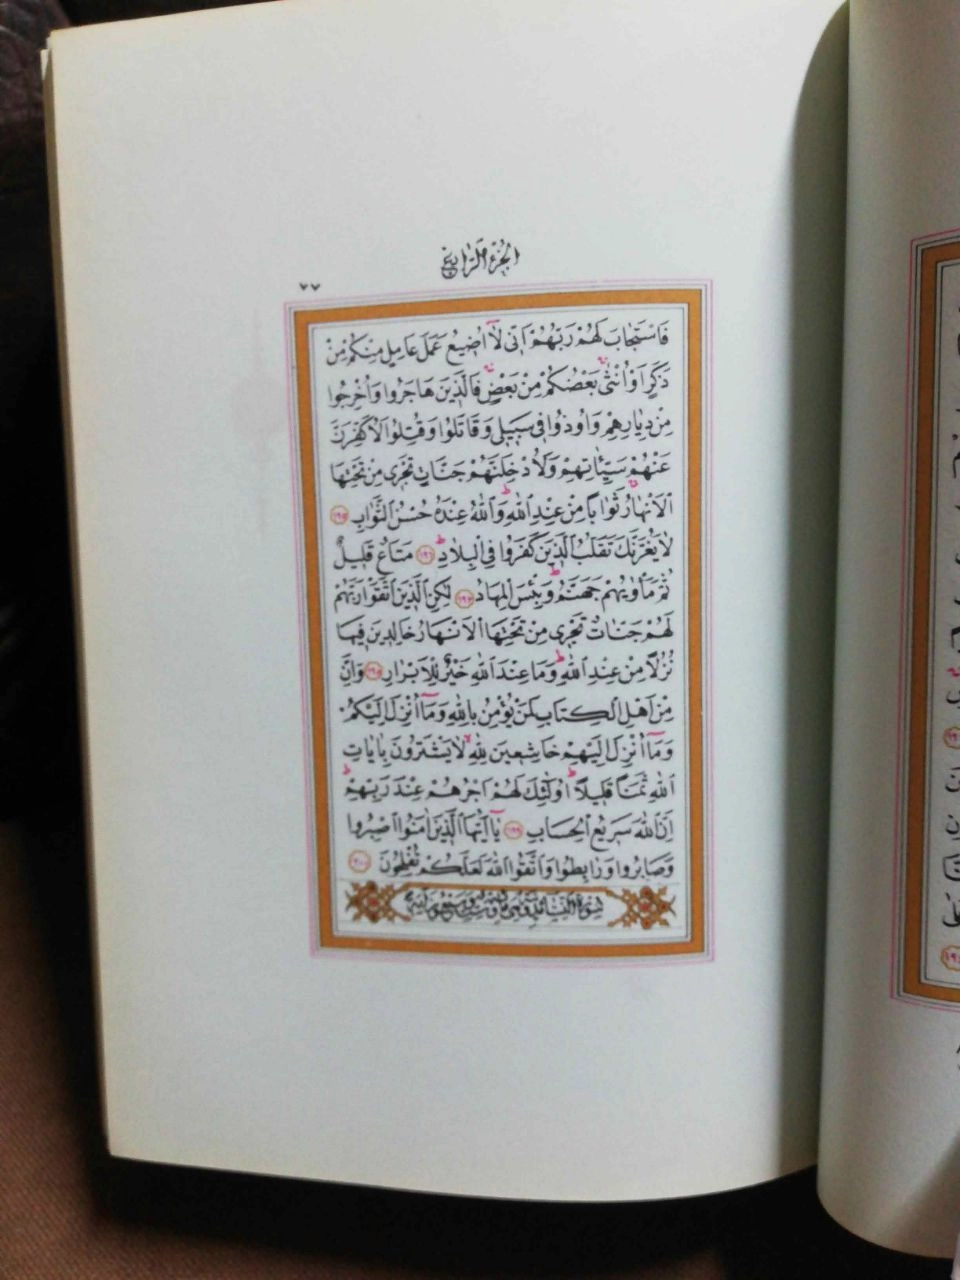 الجزء الرابع
٧٧
فَاسْتَجَابَ لَهُمْ رَبُّهُمْ اَنّى لَا اُضيعُ عَمَلَ عَامِلٍ مِنْكُمْ مِنْ
ذَكَرٍ اَوْ اُنْثٰى بَعْضُكُمْ مِنْ بَعْضٍ فَالَّذينَ هَاجَرُوا وَاُخْرِجُوا
مِنْ دِيَارِهِمْ وَاُوذُوا فى سَبيلى وَقَاتَلُوا وَقُتِلُوا لَاُكَفِّرَنَّ
عَنْهُمْ سَيِّئَاتِهِمْ وَلَاُدْخِلَنَّهُمْ جَنَّاتٍ تَجْرى مِنْ تَحْتِهَا
الْاَنْهَارُ ثَوَابًا مِنْ عِنْدِ اللّٰهِ وَاللّٰهُ عِنْدَهُ حُسْنُ الثَّوَابِ ١٩٥
لَا يَغُرَّنَّكَ تَقَلُّبُ الَّذينَ كَفَرُوا فِى الْبِلَادِ ١٩٦ مَتَاعٌ قَليلٌ
ثُمَّ مَأْوٰيهُمْ جَهَنَّمُ وَبِئْسَ الْمِهَادُ ١٩٧ لٰكِنِ الَّذينَ اتَّقَوْا رَبَّهُمْ
لَهُمْ جَنَّاتٌ تَجْرى مِنْ تَحْتِهَا الْاَنْهَارُ خَالِدينَ فيهَا
نُزُلًا مِنْ عِنْدِ اللّٰهِ وَمَا عِنْدَ اللّٰهِ خَيْرٌ لِلْاَبْرَارِ ١٩٨ وَاِنَّ
مِنْ اَهْلِ الْكِتَابِ لَمَنْ يُؤْمِنُ بِاللّٰهِ وَمَا اُنْزِلَ اِلَيْكُمْ
وَمَا اُنْزِلَ اِلَيْهِمْ خَاشِعينَ لِلّٰهِ لَا يَشْتَرُونَ بِاٰيَاتِ
اللّٰهِ ثَمَنًا قَليلًا اُولٰئِكَ لَهُمْ اَجْرُهُمْ عِنْدَ رَبِّهِمْ
اِنَّ اللّٰهَ سَريعُ الْحِسَابِ ١٩٩ يَا اَيُّهَا الَّذينَ اٰمَنُوا اصْبِرُوا
وَصَابِرُوا وَرَابِطُوا وَاتَّقُوا اللّٰهَ لَعَلَّكُمْ تُفْلِحُونَ ٢٠٠
سورة النساء